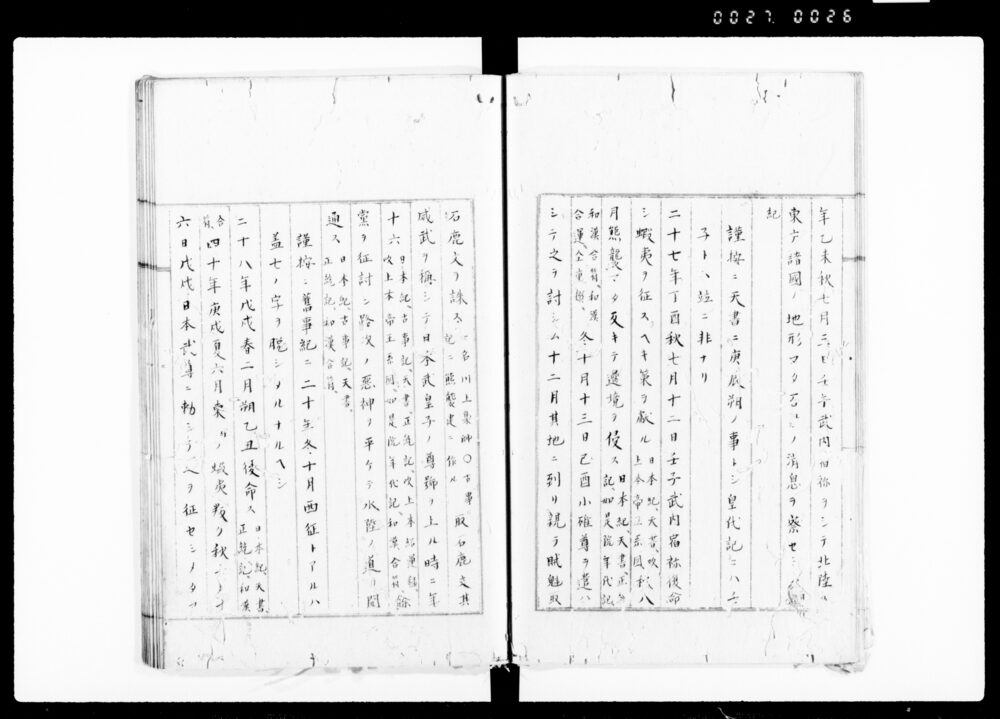 0027. 0026
年乙未秋七月三日壬午武内宿祢ヲシテ北陸及
東方諸國ノ地形マタ百姓ノ消息ヲ察セシム
紀
謹按ニ天書ニ庚辰朔ノ事トシ皇代記ニハ
子トハ竝ニ非ナリ
二十七年丁酉秋七月十二日壬子武内宿祢復命
シ蝦夷ヲ征スヘキ策ヲ獻ル 日本紀、天書、吹上本帝王系図 秋八
月熊襲マタ反キテ邊境ヲ侵ス 日本紀、天書、正統記、如是院年代記
和漢合符、和漢合運、 冬十月十三日己酉小碓尊ヲ遣ハ
シテ之ヲ討シム十二月其地ニ到リ親ラ賊魁取
石鹿文ヲ誅ス 一名川上梟帥○古事記ニ熊襲建ニ作ル 取石鹿文其
威武ヲ稱シテ日本武皇子ノ尊號ヲ上ル時ニ年
十六 日本紀、古事記、天書、正統記、吹上本帝王系図、如是院年代記、和漢合符 餘
黨ヲ征討シ路次ノ惡神ヲ平ケテ水陸ノ道ヲ開
通ス 日本紀、古事記、天書、正統記、和漢合符、
謹按ニ舊事紀ニ二十年冬十月西征トアルハ
蓋七ノ字ヲ脱シタルナルヘシ
二十八年戊戌春二月朔乙丑復命ス 日本紀、天書、正統記、和漢
合符 四十年庚戌夏六月東方ノ蝦夷叛ク秋七月十
六日戊戌日本武尊ニ勅シテ之ヲ征セシメタマ